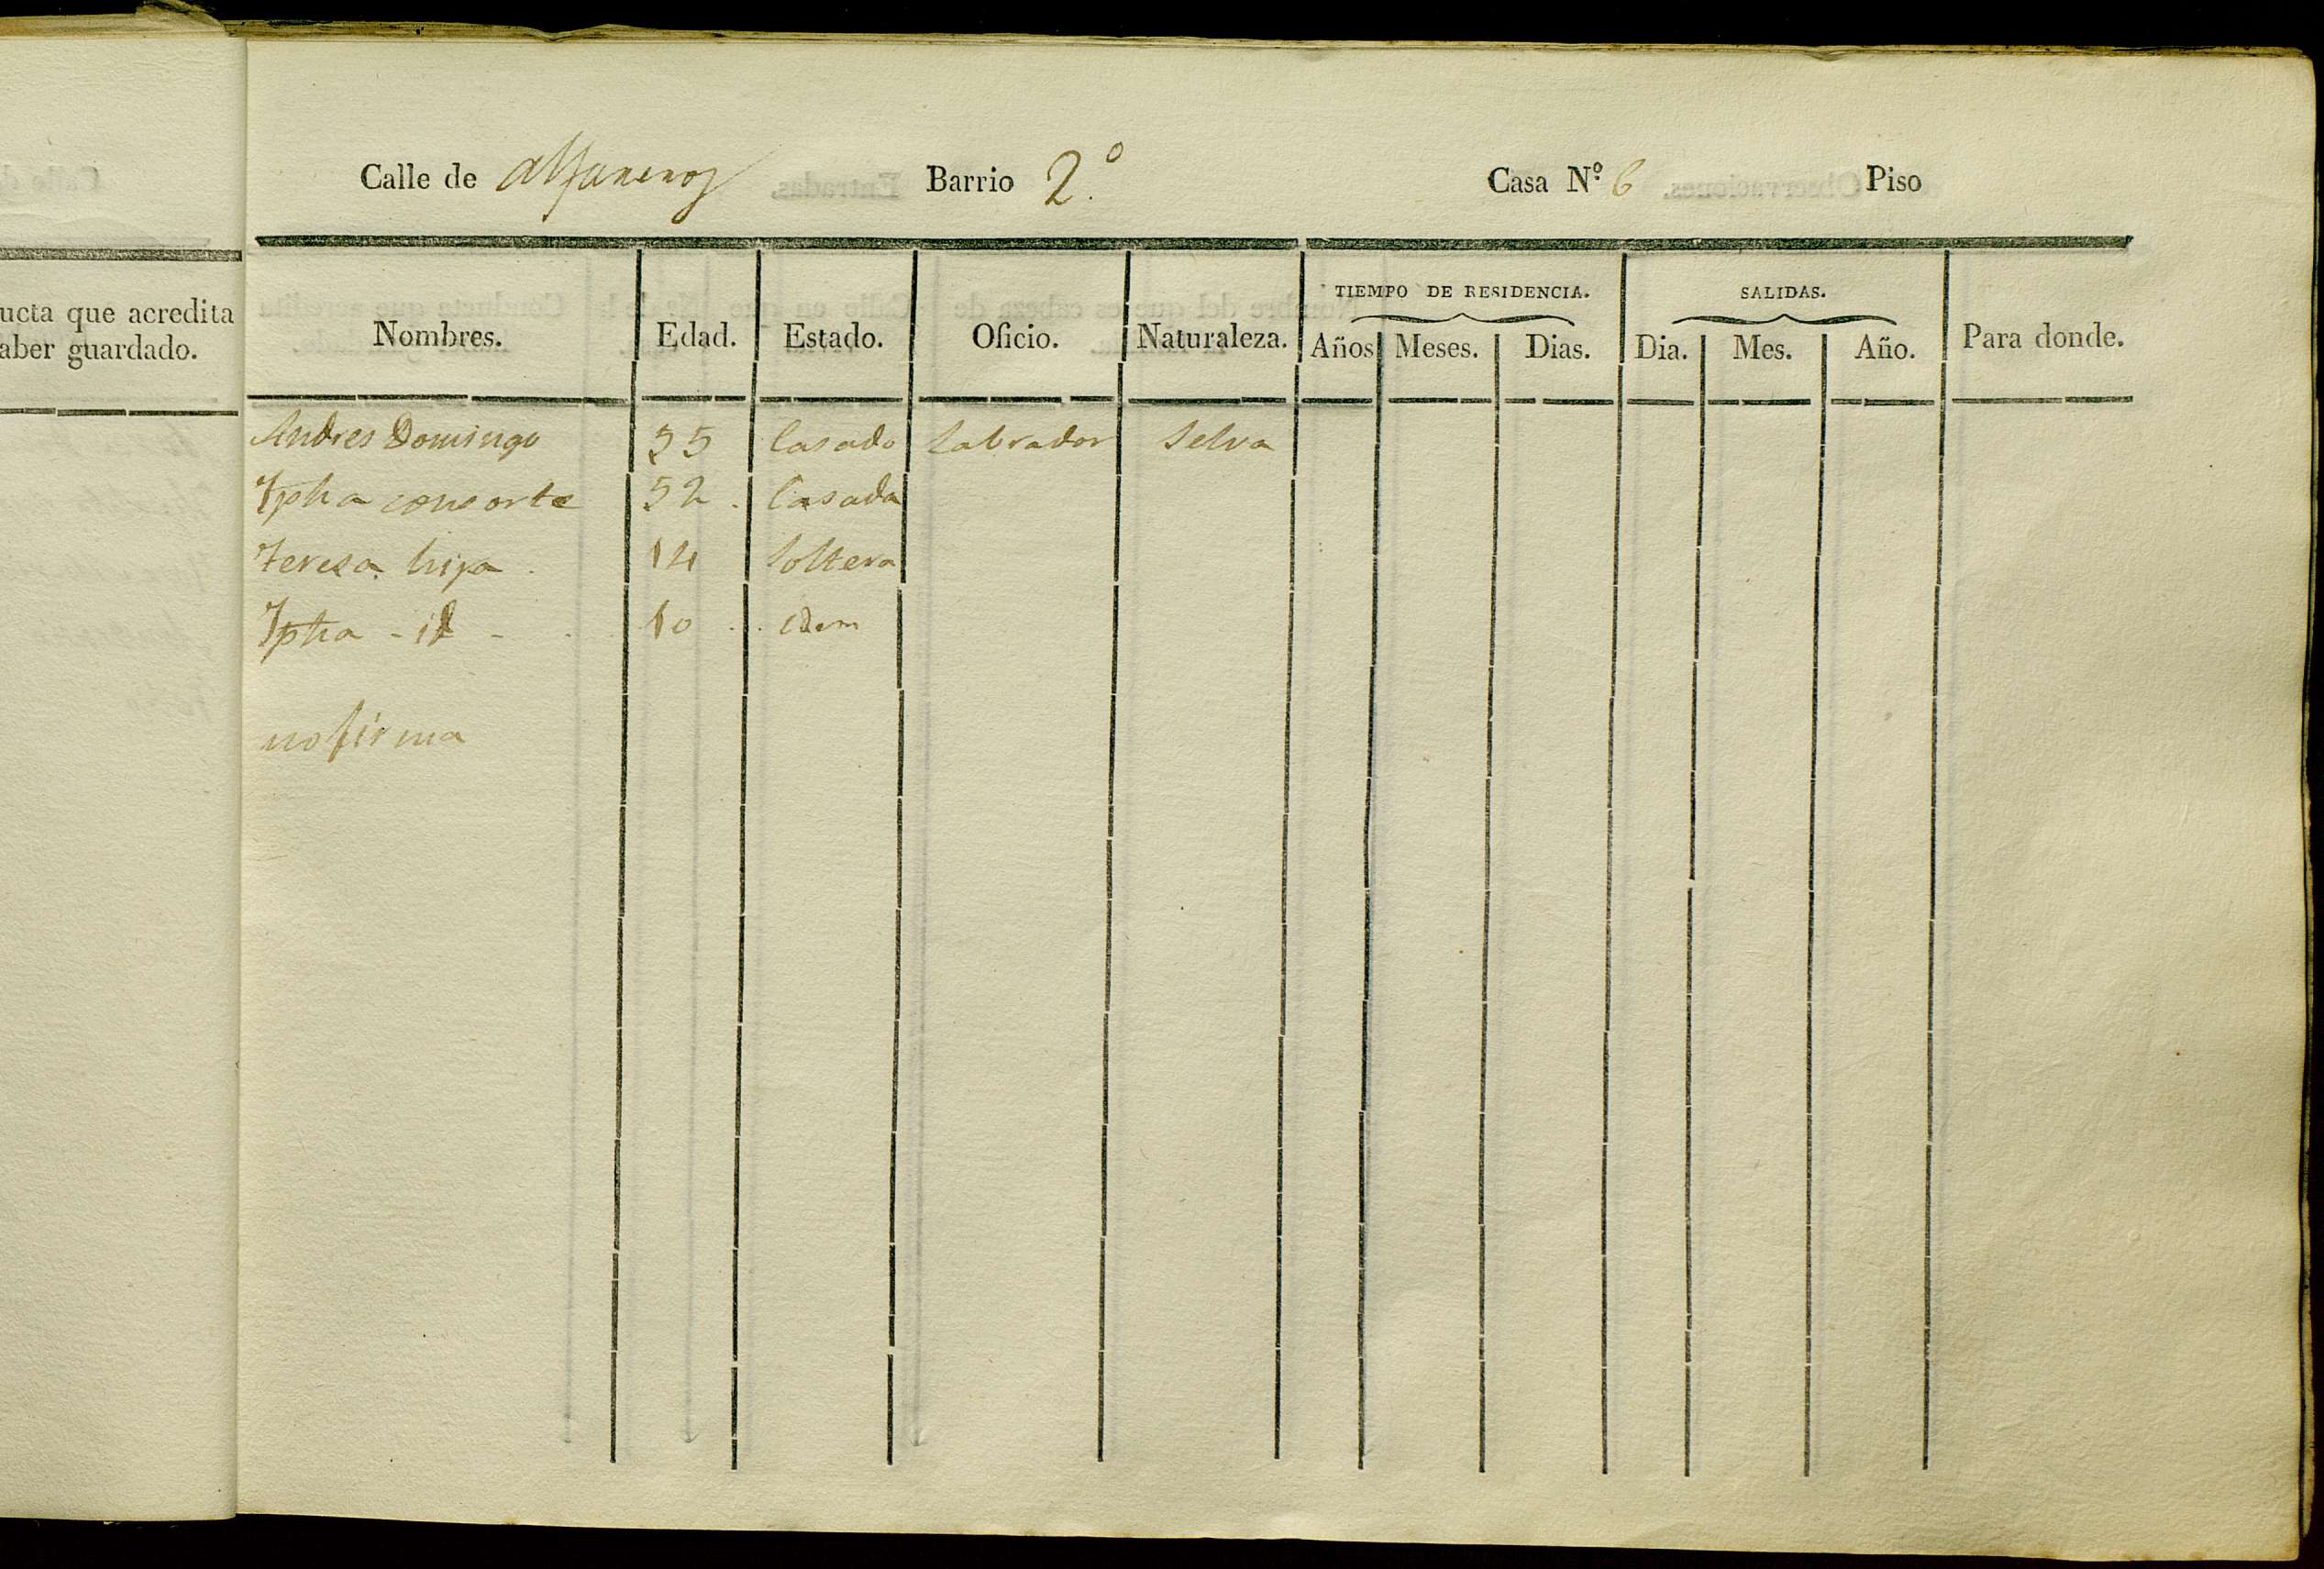 Calle de Alfareros Barrio 2.º Casa Nº 6 Piso
ucta que acredita
aber guardado.
TIEMPO DE RESIDENCIA. SALIDAS.
Nombres. Edad. Estado. Oficio. Naturaleza. Años Meses. Dias. Dia. Mes. Año. Para donde.
Andres Domingo 55 Casado Labrador Selva
Jpha consorte 52. Casada
Teresa hija. 14 Soltera
Jpha - id - 10 idem
no firma